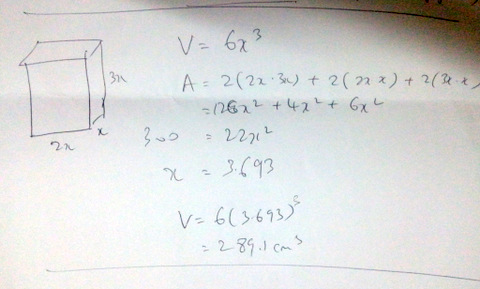 V = 6x³
A = 2(2x·3x) + 2(2x·x) + 2(3x·x)
= 12x² + 4x² + 6x²
300 = 22x²
x = 3.693
V = 6(3.693)³
= 289.1 cm³
3x
x
2x